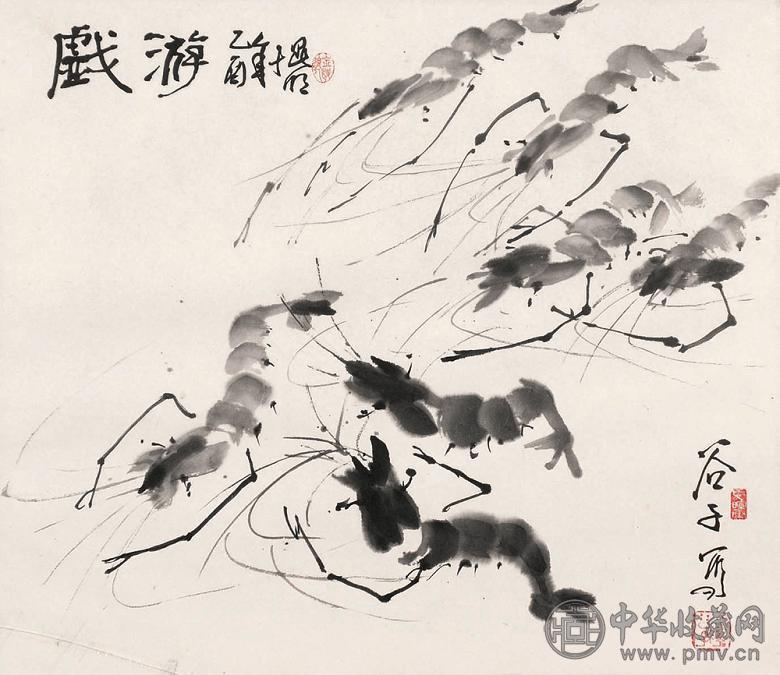 戯游
乙酉年
谷子写
中华收藏网
www.pmv.cn